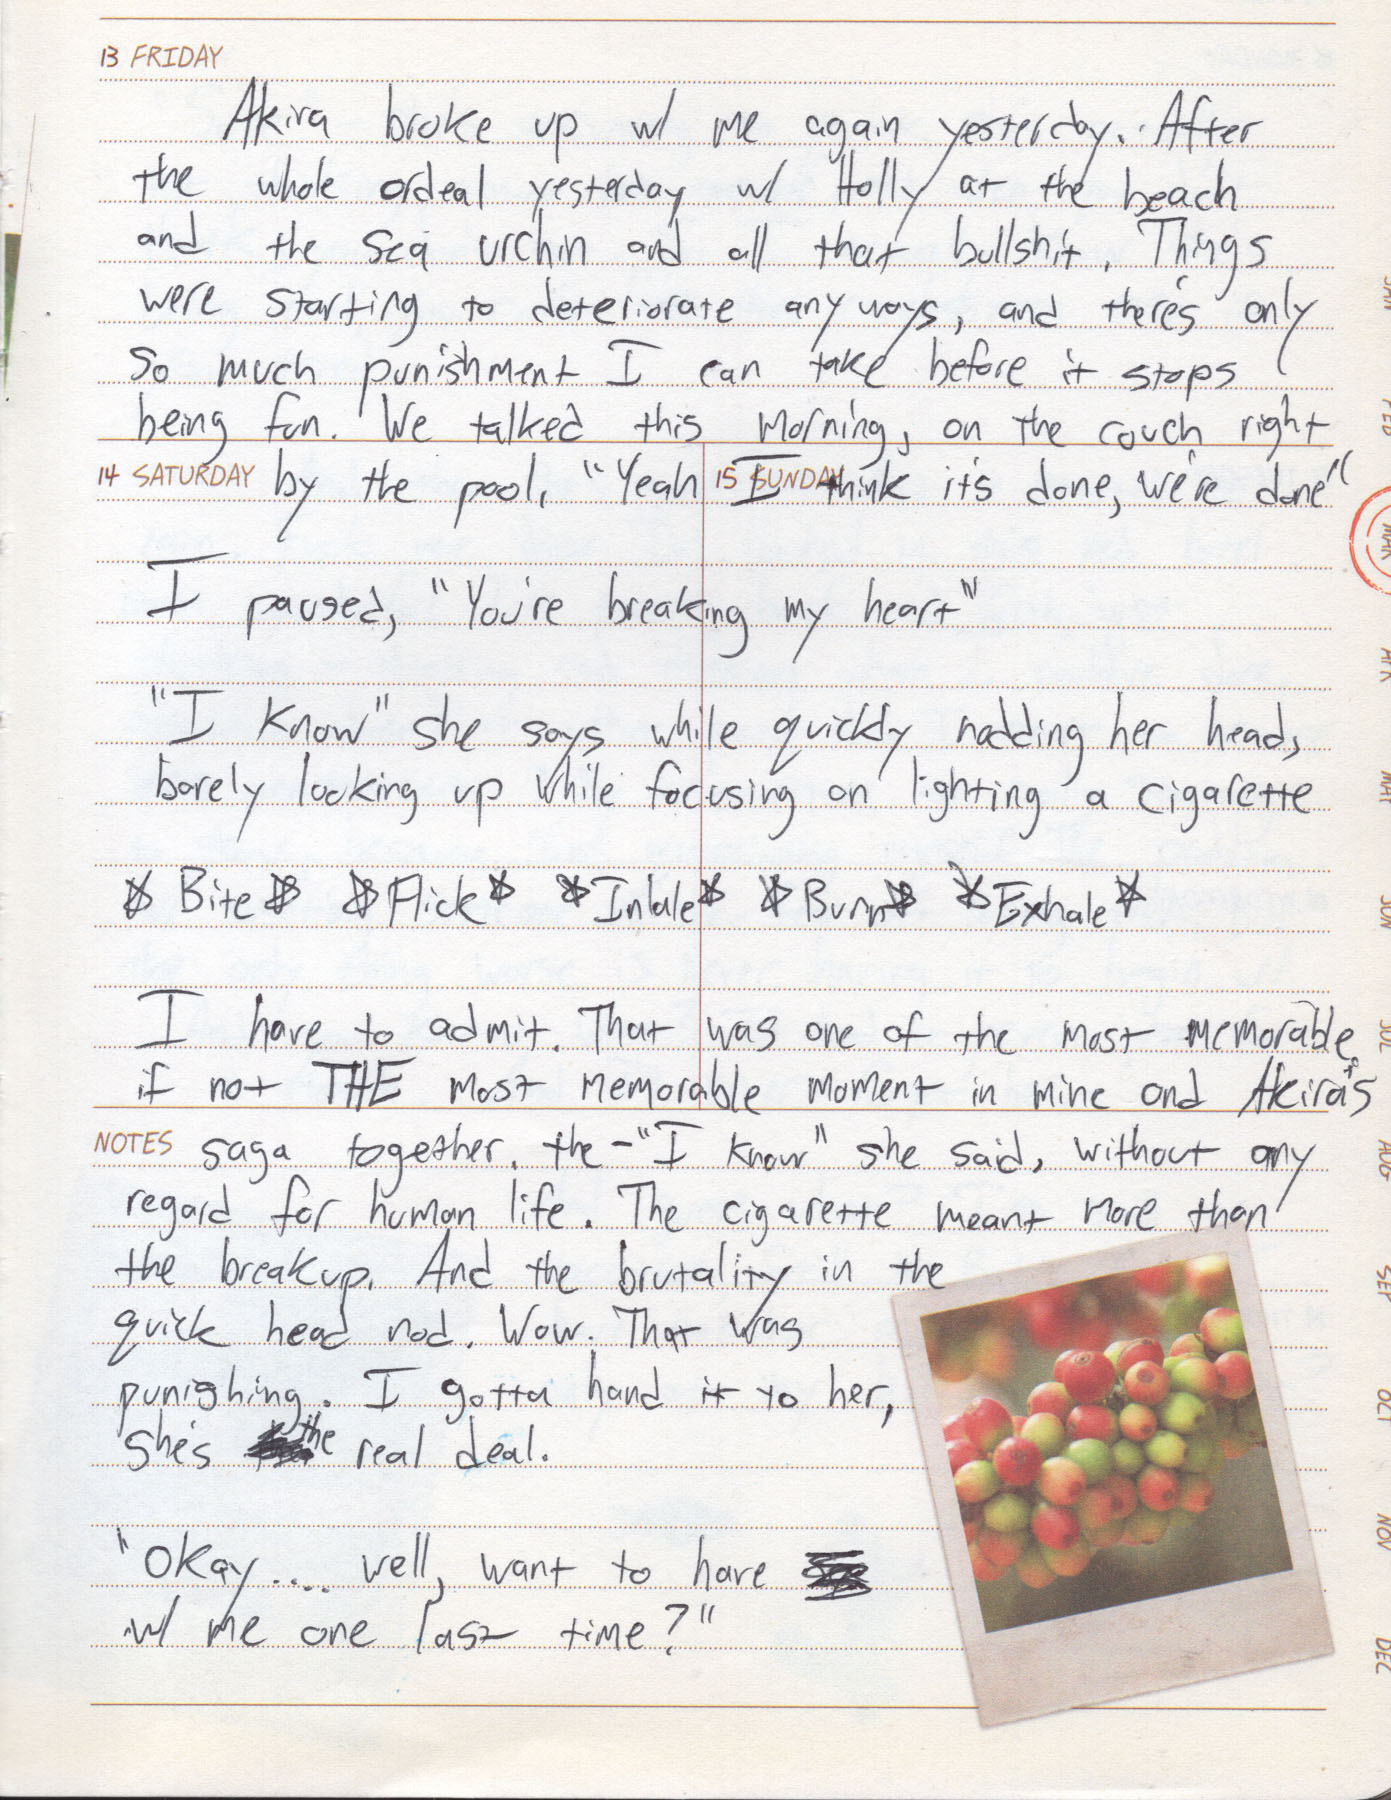 13 FRIDAY
Akira broke up w/ me again yesterday. After
the whole ordeal yesterday w/ Holly at the beach
and the sea urchin and all that bullshit. Things
were starting to deteriorate anyways, and there's only
so much punishment I can take before it stops
being fun. We talked this morning, on the couch right
14 SATURDAY 15 SUNDAY
by the pool, "Yeah I think it's done, we're done"
I paused, "You're breaking my heart"
"I know" she says while quickly nodding her head,
barely looking up while focusing on lighting a cigarette
*Bite* *Flick* *Inhale* *Burn* *Exhale*
I have to admit. That was one of the most memorable,
if not THE most memorable moment in mine and Akira's
NOTES
saga together. the - "I know" she said, without any
regard for human life. The cigarette meant more than
the breakup. And the brutality in the
quick head nod. Wow. That was
punishing. I gotta hand it to her,
she's the real deal.
"Okay.... well, want to have
w/ me one last time?"
JAN
FEB
MAR
APR
MAY
JUN
JUL
AUG
SEP
OCT
NOV
DEC